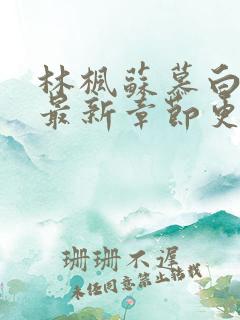 林楓蘇慕白
最新章節更
珊珊不遲
未經同意禁止轉載